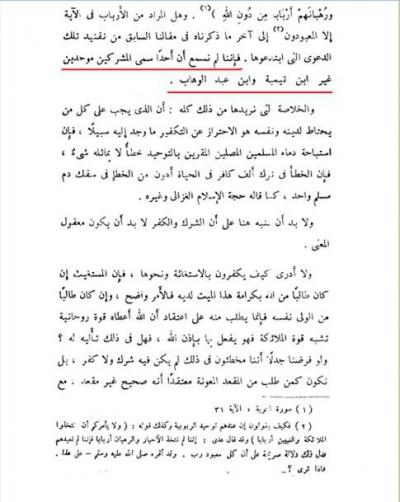 وَرُهْبَانَهُمْ أَرْبَابًا مِن دُونِ اللهِ ) (١) . وهل المراد من الأرباب فى الآية
إلا المعبودون (٢) إلى آخر ما ذكرناه فى مقالنا السابق من تفنيد تلك
الدعوى التى ابتدعوها . فإننا لم نسمع أن أحدًا سمى المشركين موحدين
غير ابن تيمية وابن عبد الوهاب .
والخلاصة التى نريدها من ذلك كله : أن الذى يجب على كل من
يحتاط لدينه ونفسه هو الاحتراز عن التكفير ما وجد إليه سبيلًا ، فإن
استباحة دماء المسلمين المصلين المقرين بالتوحيد خطأ لا يماثله شىء ،
فإن الخطأ فى ترك ألف كافر فى الحياة أهون من الخطإ فى سفك دم
مسلم واحد ، كما قاله حجة الإسلام الغزالى وغيره .
ولا بد أن ننبه هنا على أن الشرك والكفر لا بد أن يكون معقول
المعنى .
ولا أدرى كيف يكفرون بالاستغاثة ونحوها ، فإن المستغيث إن
كان طالبًا من الله بكرامة هذا الميت لديه فالأمر واضح ، وإن كان طالبًا
من الولى نفسه فإنما يطلب منه على اعتقاد أن الله أعطاه قوة روحانية
تشبه قوة الملائكة فهو يفعل بها بإذن الله ، فهل فى ذلك تأليه له ؟
ولو فرضنا جدلًا أننا مخطئون فى ذلك لم يكن فيه شرك ولا كفر ، بل
نكون كمن طلب من المقعد المعونة معتقدًا أنه صحيح غير مقعد . مع
( ١ ) سورة التوبة ، الآية ٣١
( ٢ ) فكيف يقولون إن عندهم توحيد الربوبية وكذلك قوله : ( ولا يأمركم أن تتخذوا
الملائكة والنبيين أربابا ) وقد قال عدى : إننا لم نتخذ الأحبار والرهبان أربابا فإننا لم نعبدهم
فدل ذلك دلالة صريحة على أن كل معبود رب . وقد أقره صلى الله عليه وسلم – على هذا .
فماذا ترى ؟ –